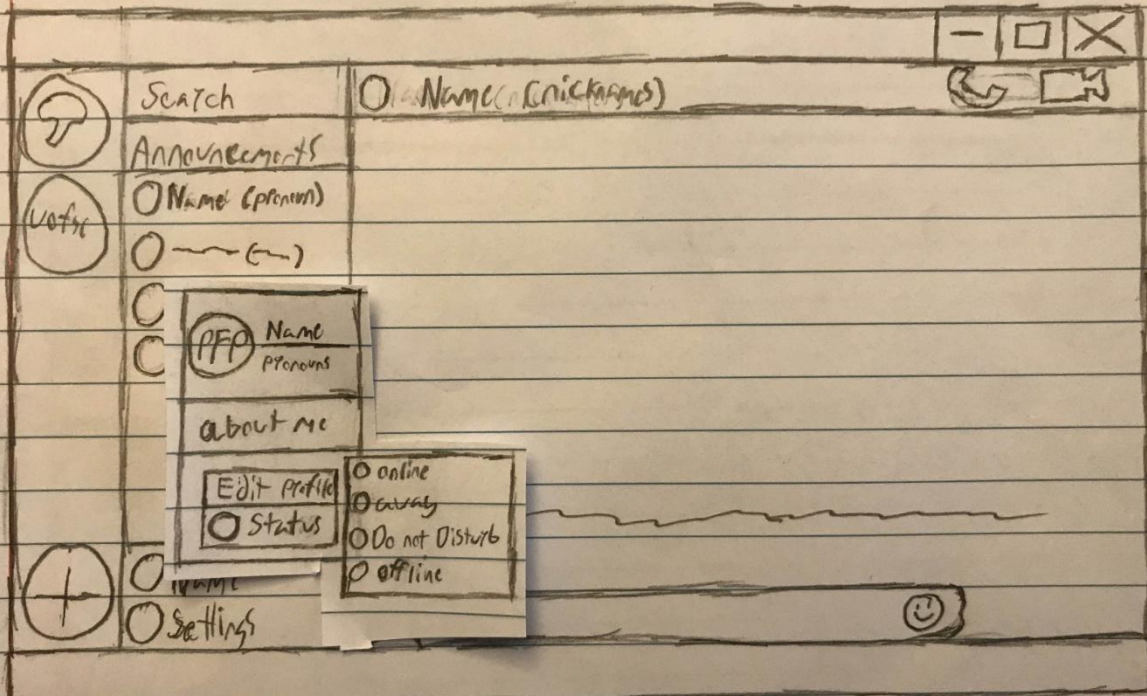 Search
Name (nicknames)
Announcements
uofsc
Name (pronoun)
PFP
Name
pronouns
about me
Edit Profile
Status
online
away
Do not Disturb
offline
Name
Settings